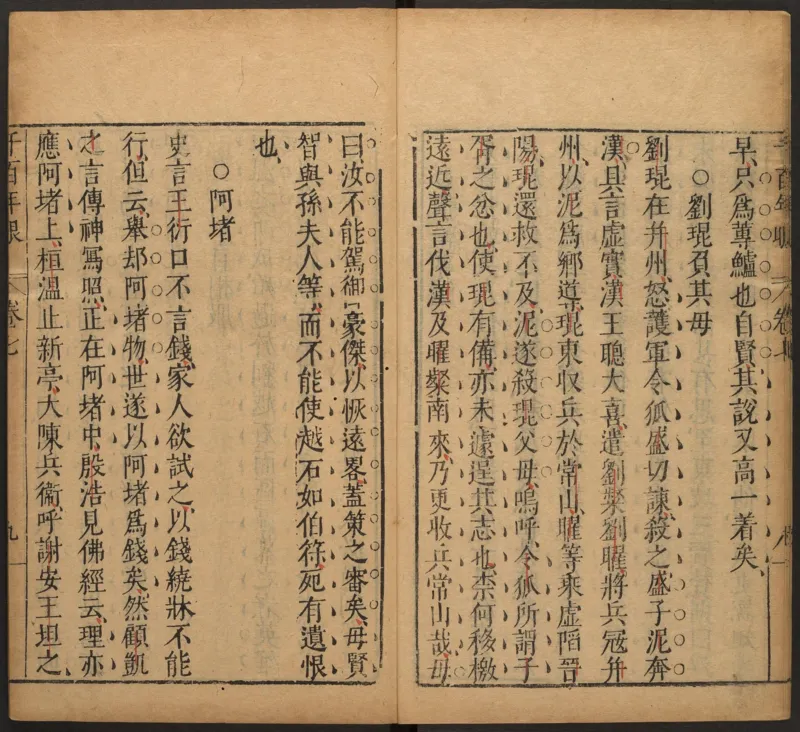 早只為蓴鱸也自賢其說又高一着矣
○劉琨負其母
劉琨在幷州怒護軍令狐盛切諫殺之盛子泥奔
漢具言虛實漢王聰大喜遣劉粲劉曜將兵冦幷
州以泥爲鄉導琨東収兵於常山曜等乘虛陷晉
陽琨還救不及泥遂殺琨父母嗚呼令狐所謂子
胥之忿也使琨有備亦未遽逞其志也柰何移檄
遠近聲言伐漢及曜粲南來乃更收兵常山哉母
曰汝不能駕御豪傑以恢遠畧蓋策之審矣毋賢
智與孫夫人等而不能使越石如伯符死有遺恨
也
○阿堵
史言王衍口不言錢家人欲試之以錢繞牀不能
行但云舉却阿堵物世遂以阿堵爲錢矣然顧凱
之言傳神寫照正在阿堵中殷浩見佛經云理亦
應阿堵上桓溫止新亭大陳兵衞呼謝安王坦之
千百年眼
卷七
九